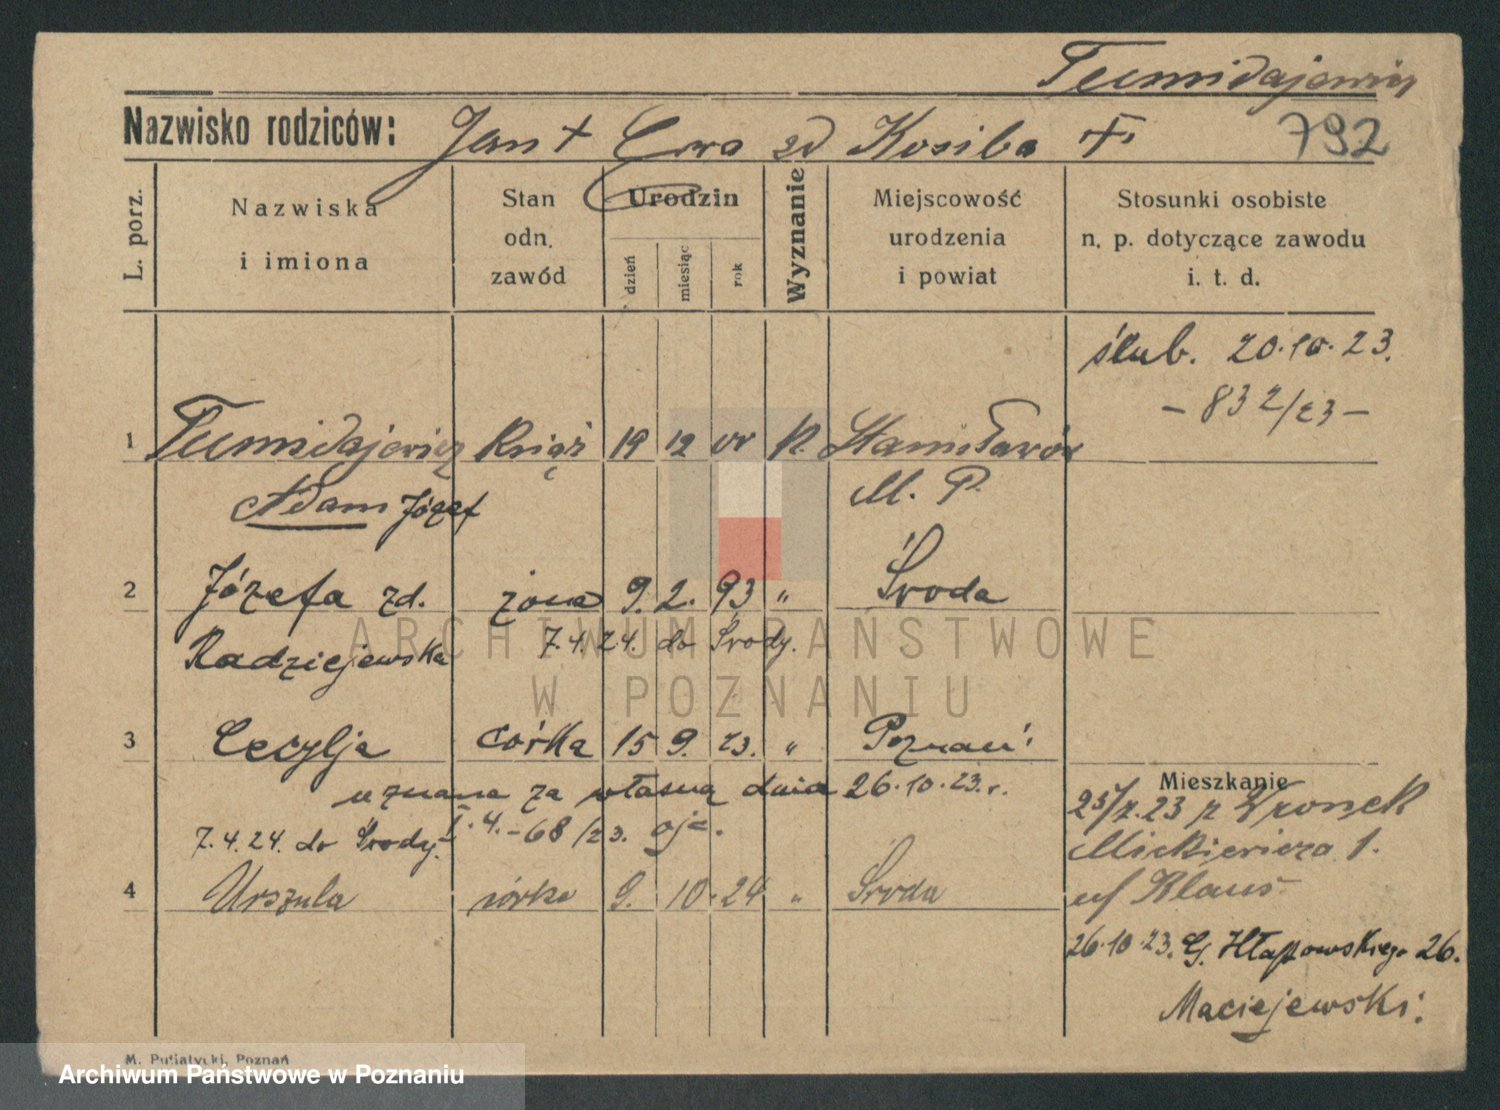 Tumidajewicz
Nazwisko rodziców: Jan + Ewa zd Kosiba +
792
L. porz.
Nazwiska
i imiona
Stan
odn.
zawód
Urodzin
dzień
miesiąc
rok
Wyznanie
Miejscowość
urodzenia
i powiat
Stosunki osobiste
n. p. dotyczące zawodu
i. t. d.
ślub. 20.10.23.
- 832/23 -
1 Tumidajewicz 19 12 K. Stanisławów
Adam Józef M. P.
2 Józefa zd. żona 9. 2. 93 " Środa
Radziejewska 7.4.24. do Środy.
3 Cecylja córka 15 9. 23. " Poznań
uznana za własną dnia 26.10.23.r.
7.4.24. do Środy. I.4.-68/23.
4 Urszula córka 9. 10. 24 " Środa
Mieszkanie
23/7.23 z Wronek
Mickiewicza 1.
u/ Klaus
26.10.23. G. Hłapowskiego 26.
Maciejewski.
M. Putiatycki, Poznań
ARCHIWUM PAŃSTWOWE
W POZNANIU
Archiwum Państwowe w Poznaniu